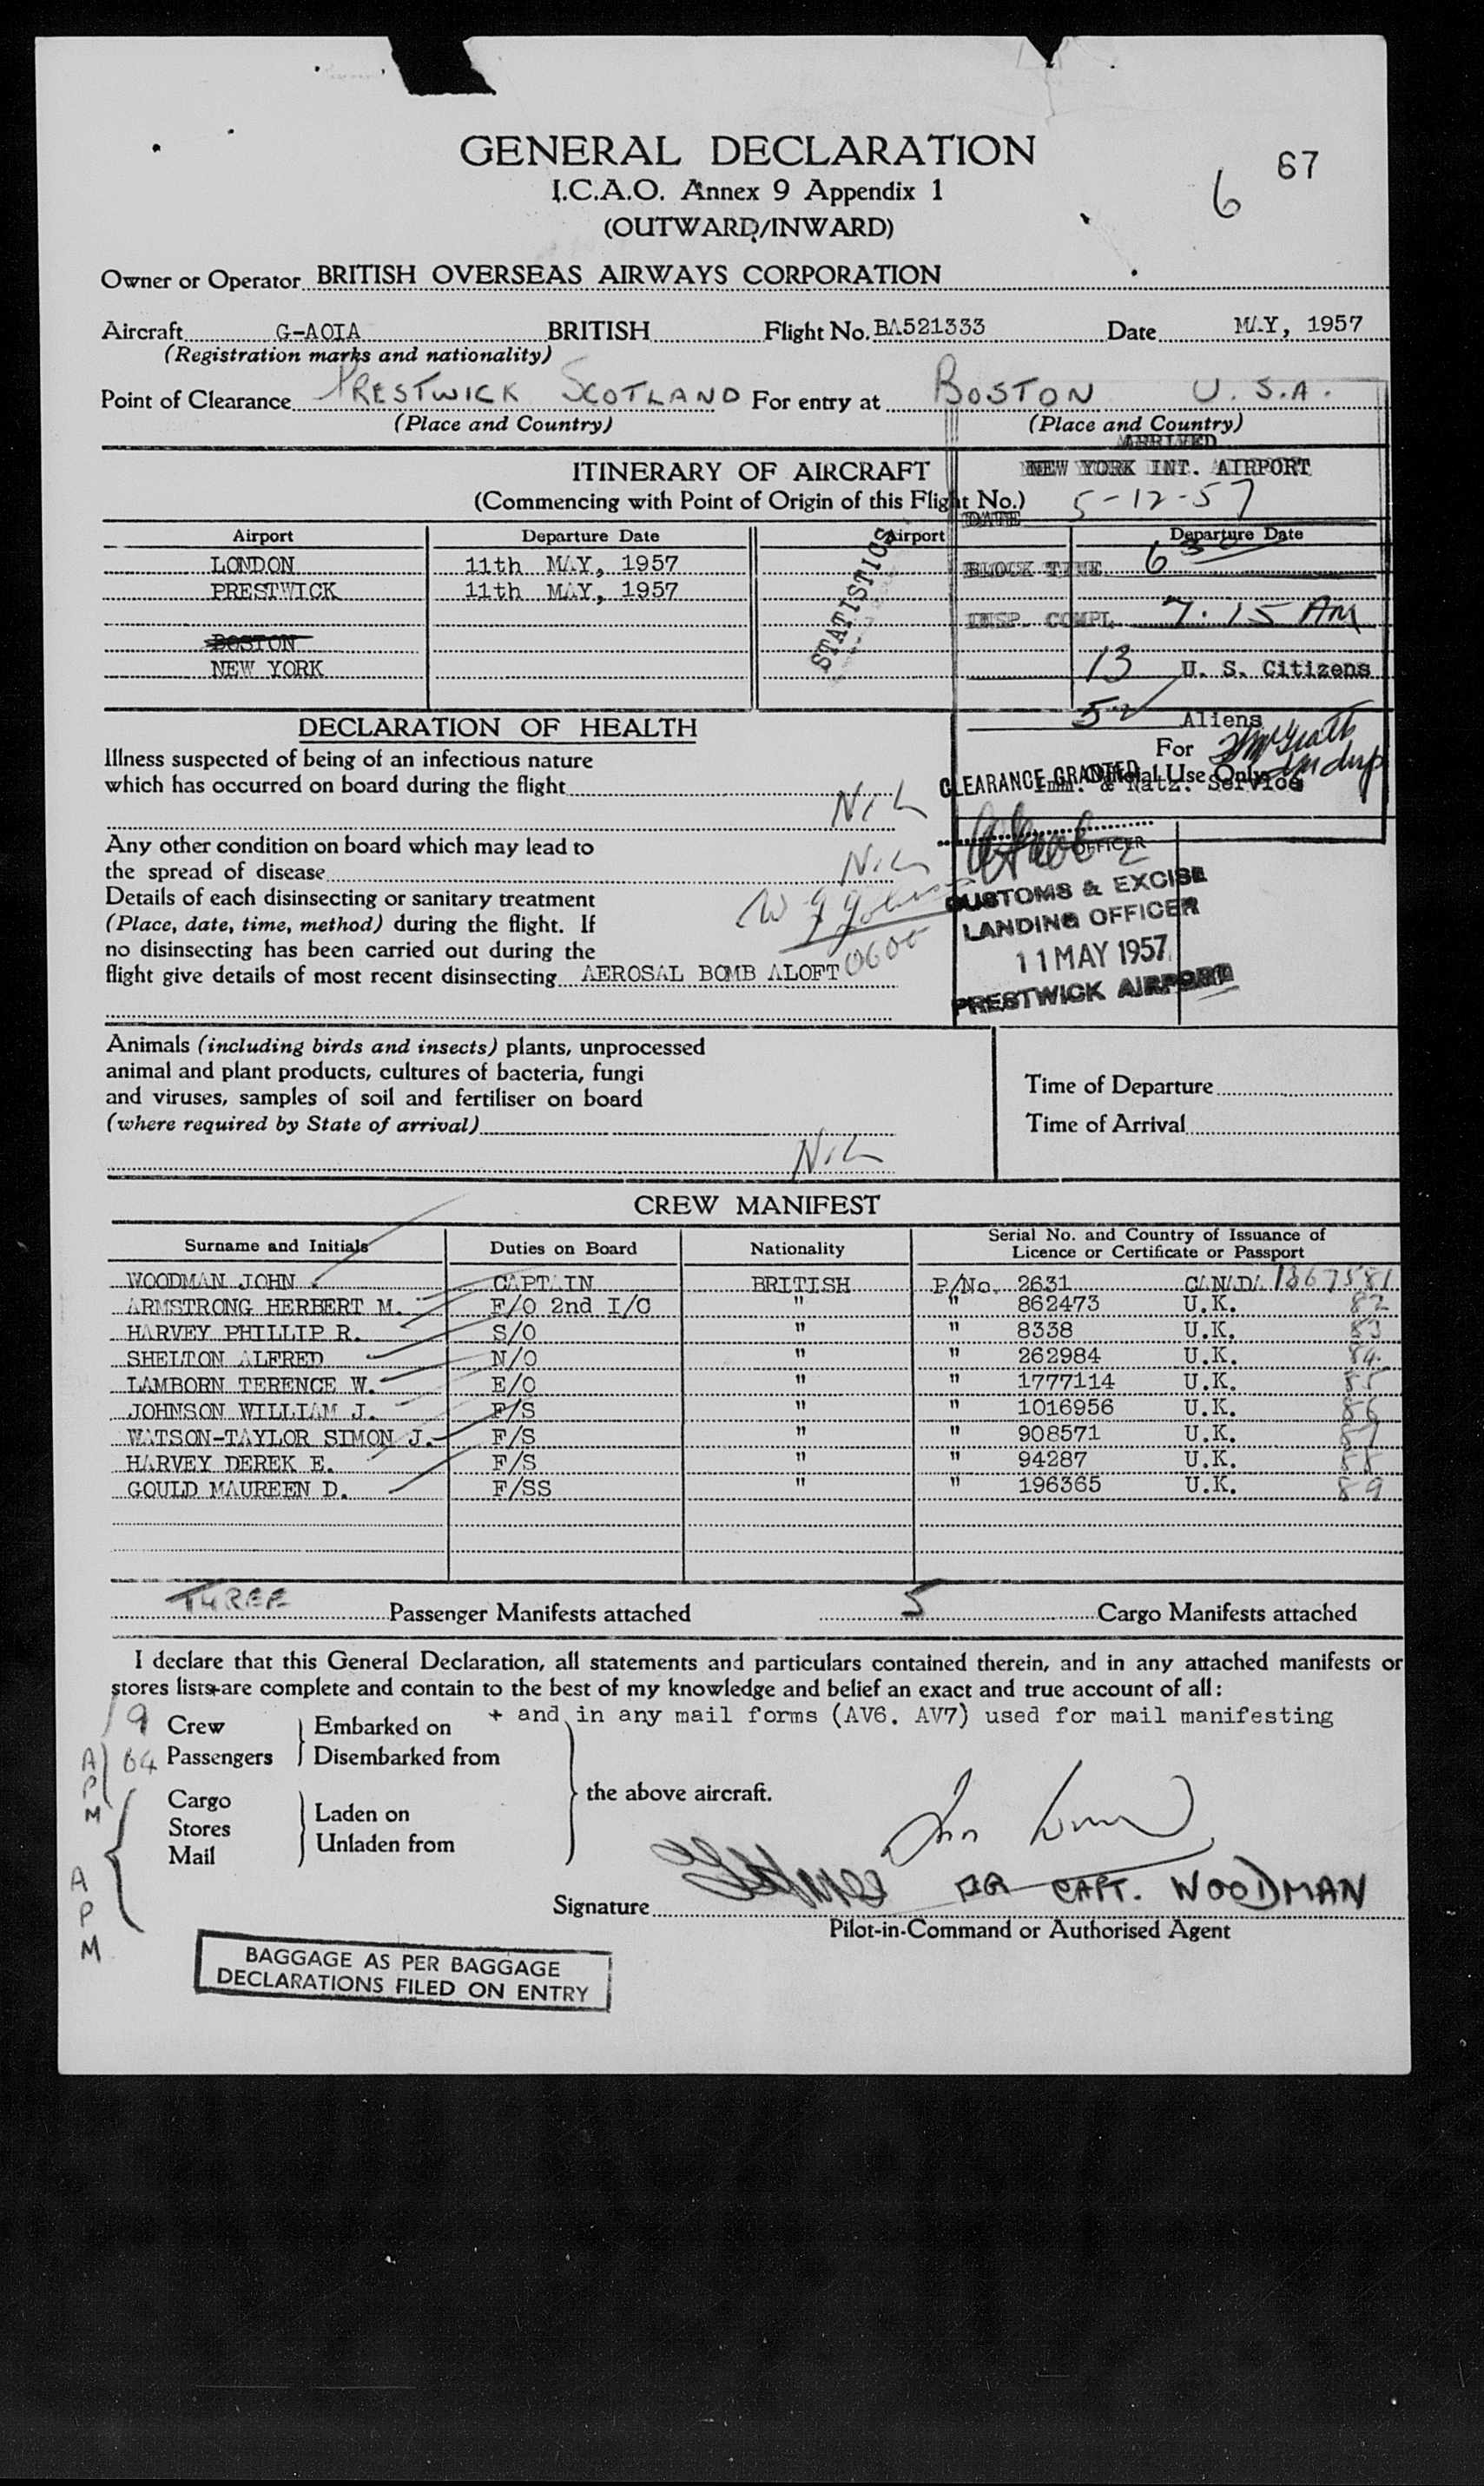 GENERAL DECLARATION
67
I.C.A.O. Annex 9 Appendix 1
6
(OUTWARD/INWARD)
Owner or Operator BRITISH OVERSEAS AIRWAYS CORPORATION
Aircraft G-AOIA BRITISH Flight No. BA521333 Date MAY, 1957
(Registration marks and nationality)
Point of Clearance PRESTWICK SCOTLAND For entry at BOSTON U.S.A.
(Place and Country) (Place and Country)
ARRIVED
ITINERARY OF AIRCRAFT
NEW YORK INT. AIRPORT
(Commencing with Point of Origin of this Flight No.)
DATE 5-12-57
Airport Departure Date Airport Departure Date
LONDON 11th MAY, 1957
BLOCK TIME 630
PRESTWICK 11th MAY, 1957
STATISTICS
INSP. COMPL 7.15 AM
BOSTON
NEW YORK
13 U. S. Citizens
52 Aliens
DECLARATION OF HEALTH
For
Official Use Only
Imm. & Natz. Service
CLEARANCE GRANTED
Illness suspected of being of an infectious nature
which has occurred on board during the flight Nil
OFFICER
Any other condition on board which may lead to
the spread of disease Nil
CUSTOMS & EXCISE
LANDING OFFICER
11 MAY 1957
PRESTWICK AIRPORT
Details of each disinsecting or sanitary treatment
(Place, date, time, method) during the flight. If
no disinsecting has been carried out during the
flight give details of most recent disinsecting AEROSAL BOMB ALOFT 0600
Animals (including birds and insects) plants, unprocessed
animal and plant products, cultures of bacteria, fungi
and viruses, samples of soil and fertiliser on board
(where required by State of arrival)
Nil
Time of Departure
Time of Arrival
CREW MANIFEST
Surname and Initials Duties on Board Nationality Serial No. and Country of Issuance of
Licence or Certificate or Passport
WOODMAN JOHN CAPTAIN BRITISH P/No. 2631 CANADA 1367581
ARMSTRONG HERBERT M. F/O 2nd I/C " " 862473 U.K. 82
HARVEY PHILLIP R. S/O " " 8338 U.K. 83
SHELTON ALFRED N/O " " 262984 U.K. 84
LAMBORN TERENCE W. E/O " " 1777114 U.K. 85
JOHNSON WILLIAM J. F/S " " 1016956 U.K. 86
WATSON-TAYLOR SIMON J. F/S " " 908571 U.K. 87
HARVEY DEREK E. F/S " " 94287 U.K. 88
GOULD MAUREEN D. F/SS " " 196365 U.K. 89
THREE Passenger Manifests attached 5 Cargo Manifests attached
I declare that this General Declaration, all statements and particulars contained therein, and in any attached manifests or
stores lists+are complete and contain to the best of my knowledge and belief an exact and true account of all:
+ and in any mail forms (AV6. AV7) used for mail manifesting
9 Crew Embarked on
64 Passengers Disembarked from
A P M
the above aircraft.
Cargo
Stores
Mail
Laden on
Unladen from
A P M
Signature CAPT. WOODMAN
Pilot-in-Command or Authorised Agent
BAGGAGE AS PER BAGGAGE
DECLARATIONS FILED ON ENTRY